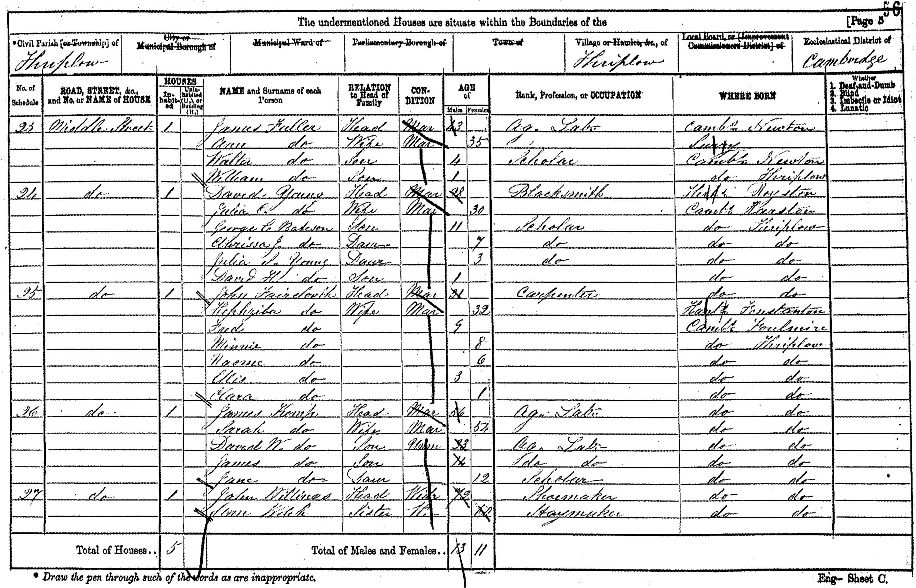 56
The undermentioned Houses are situate within the Boundaries of the [Page 5
*Civil Parish [or Township] of City or Municipal Borough of Municipal Ward of Parliamentary Borough of Town of Village or Hamlet, &c., of Local Board, or [Improvement Commissioners District] of Ecclesiastical District of
Thriplow Thriplow Cambridge
No. of Schedule ROAD, STREET, &c., and No. or NAME of HOUSE HOUSES Inhabited Uninhabited (U.), or Building (B.) NAME and Surname of each Person RELATION to Head of Family CONDITION AGE of Males Females Rank, Profession, or OCCUPATION WHERE BORN Whether 1. Deaf-and-Dumb 2. Blind 3. Imbecile or Idiot 4. Lunatic
23 Middle Street 1 James Fuller Head Mar 43 Ag. Labr Cambs Newton
Ann do Wife Mar 35
Walter do Son 4 Scholar Cambs Newton
William do Son 1 do Thriplow
24 do 1 David Young Head Mar 28 Blacksmith Herts Royston
Julia C. do Wife Mar 30 Cambs
George C. Son 11 Scholar do Thriplow
do Daur 7 do do do
Julia S. Young Daur 3 do do do
David H. do Son 1 do do
25 do 1 John Head Mar Carpenter do do
do Wife Mar 32 Hants Fenstanton
do 9 Cambs Foulmire
Minnie do 8 do Thriplow
Naomi do 6 do do
Ellis do 3 do do
Clara do 1 do do
26 do 1 James Kemp Head Mar 56 Ag. Labr do do
Sarah do Wife Mar 54 do do
David W. do Son Unm 23 Ag. Labr do do
James do Son 14 do do do do
Jane do Daur 12 Scholar do do
27 do 1 John Willings Head Widr 72 Shoemaker do do
Sister W. Staymaker do do
Total of Houses.. 5 Total of Males and Females.. 13 11
* Draw the pen through such of the words as are inappropriate. Eng- Sheet C.